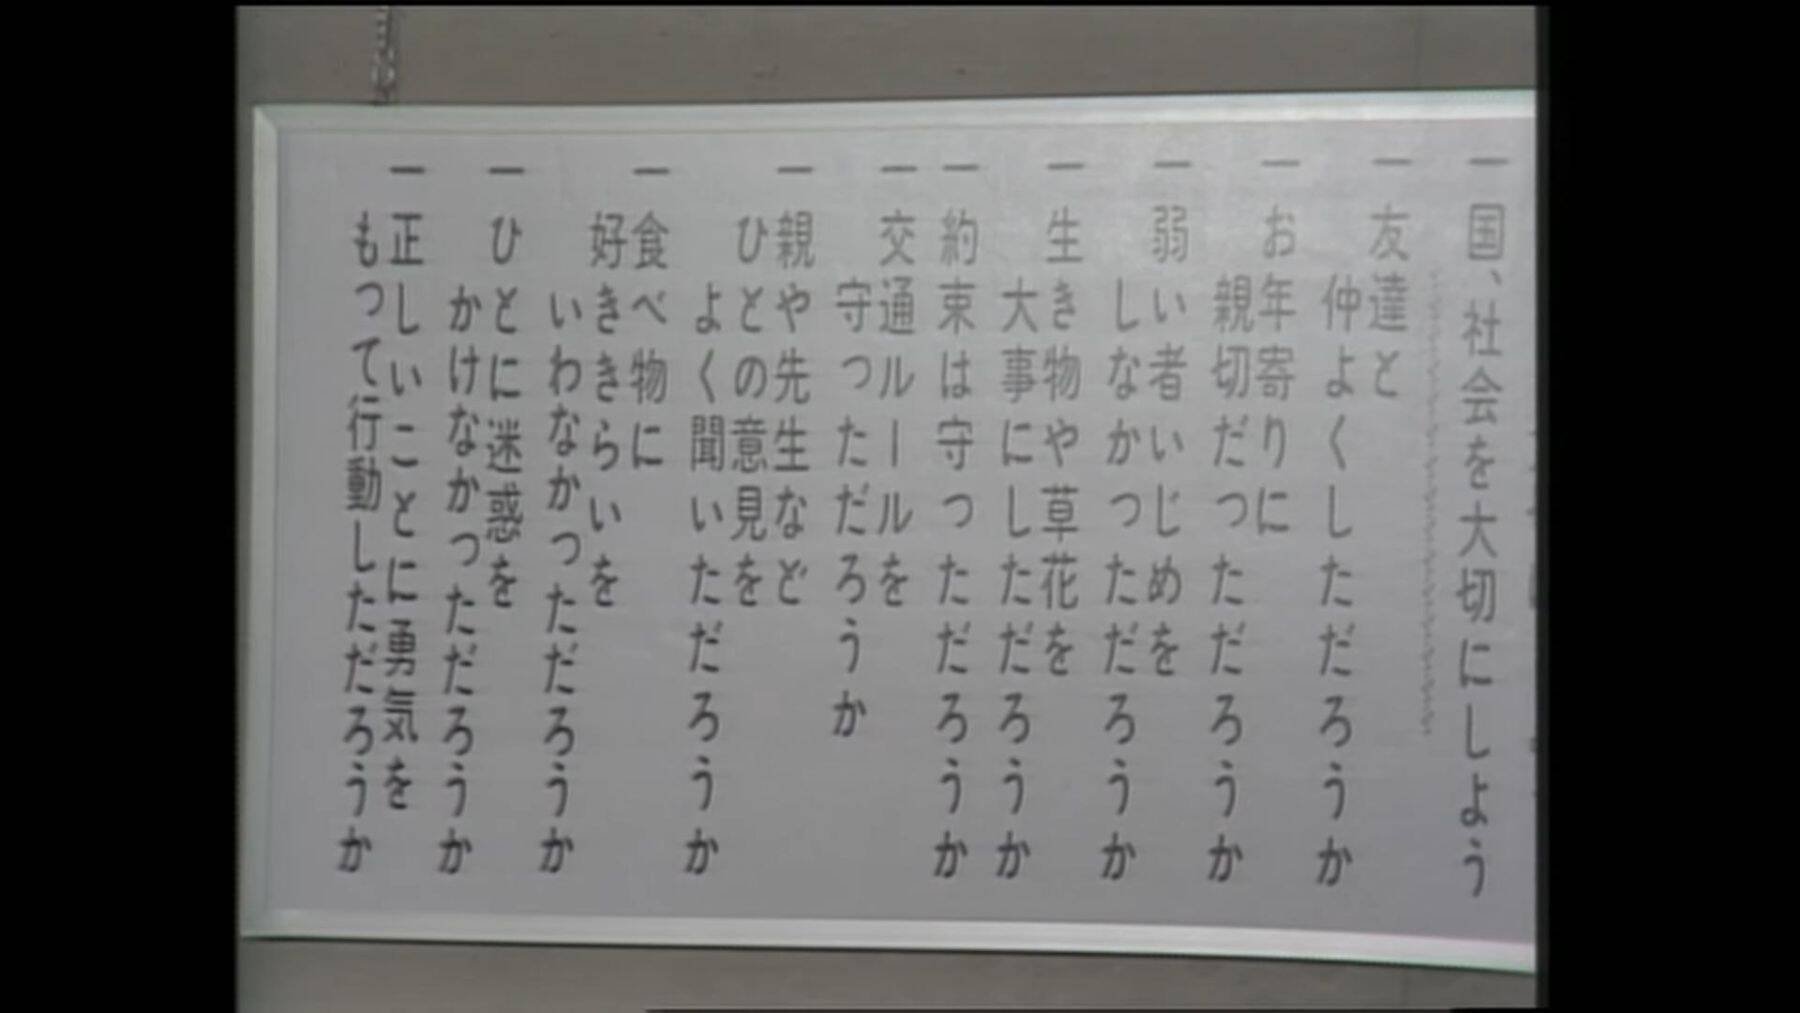 一 国、社会を大切にしよう
一 友達と
仲よくしただろうか
一 お年寄りに
親切だっただろうか
一 弱い者いじめを
しなかっただろうか
一 生き物や草花を
大事にしただろうか
一 約束は守っただろうか
一 交通ルールを
守っただろうか
一 親や先生など
ひとの意見を
よく聞いただろうか
一 食べ物に
好ききらいを
いわなかっただろうか
一 ひとに迷惑を
かけなかっただろうか
一 正しいことに勇気を
もって行動しただろうか